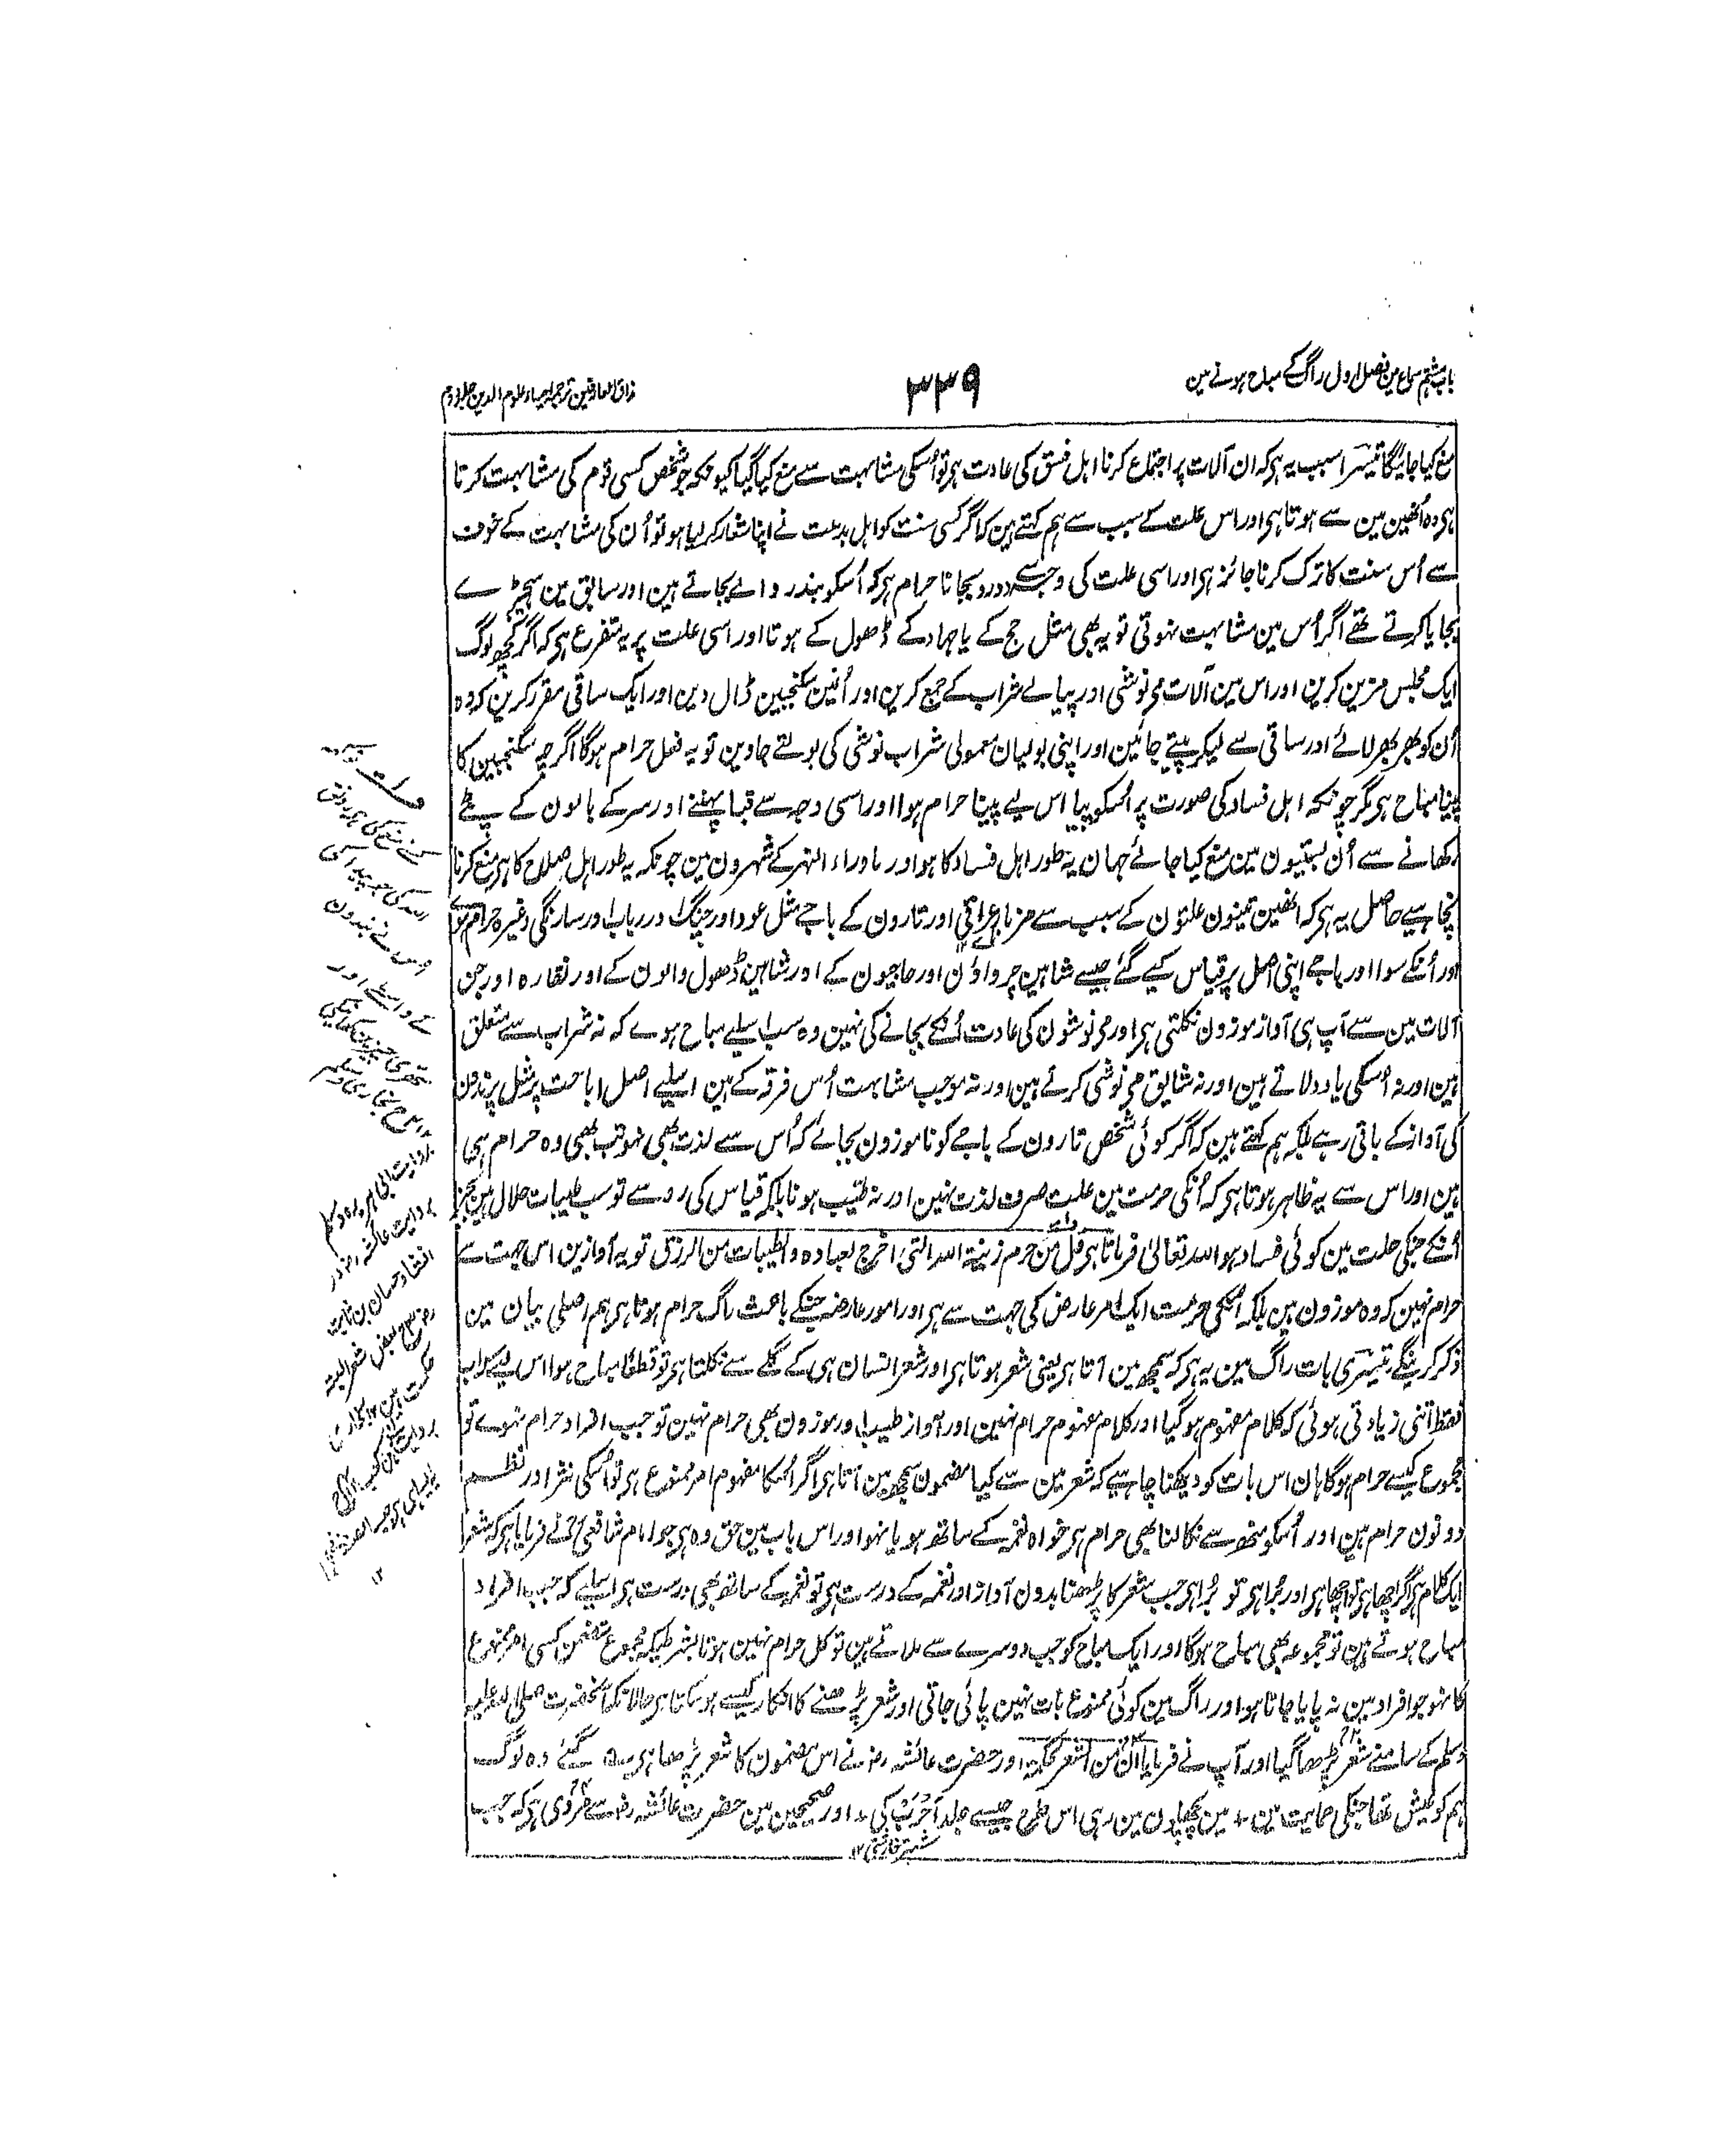 باب ہشتم سماع میں فصل اول راگ کے مباح ہونے مین
۳۳۹
مذاق العارفین ترجمہ احیاء علوم الدین جلد دوم
منع کیا جائیگا تیسرا سبب یہ ہی کہ ان آلات پر اجتماع کرنا اہل فسق کی عادت ہی تو اُسکی مشابہت سے منع کیا گیا کیونکہ جو شخص کسی قوم کی مشابہت کرتا
ہی وہ اُنھین مین سے ہوتا ہی اور اس علت کے سبب سے ہم کہتے ہین کہ اگر کسی سنت کو اہل بدعت نے اپنا شعار کر لیا ہو تو اُن کی مشابہت کے خوف
سے اُس سنت کا ترک کرنا جائز ہی اور اسی علت کی وجہ سے ڈورو بجانا حرام ہی کہ اُسکو بندر والے بجاتے ہین اور سابق مین ہیجڑے
بجایا کرتے تھے اگر اُس مین مشابہت نہوتی تو یہ بھی مثل حج کے یا جہاد کے ڈھول کے ہوتا اور اسی علت پر یہ متفرع ہی کہ اگر کچھ لوگ
ایک مجلس مزین کرین اور اس مین آلات می نوشی اور پیالے شراب کے جمع کرین اور اُنمین سکنجبین ڈال دین اور ایک ساقی مقرر کرین کہ وہ
اُن کو بھر بھر لائے اور ساقی سے لیکر پیتے جائین اور اپنی بولیان معمولی شراب نوشی کی بولتے جاوین تو یہ فعل حرام ہوگا اگرچہ سکنجبین کا
پینا مباح ہی مگر چونکہ اہل فساد کی صورت پر اُسکو پیا اس لیے پینا حرام ہوا اور اسی وجہ سے قبا پہننے اور سر کے بالون کے پٹے
رکھانے سے اُن بستیون مین منع کیا جائے جہان یہ طور اہل فساد کا ہو اور ماوراء النہر کے شہرون مین چونکہ یہ طور اہل صلاح کا ہی منع کرنا
نچاہیے حاصل یہ ہی کہ انھین تینون علتون کے سبب سے مزمار عراقی اور تارون کے باجے مثل عود اور چنگ اور رباب اور سارنگی وغیرہ حرام ہوے
اور اُنکے سوا اور باجے اپنی اصل پر قیاس کیے گئے جیسے شاہین چرواہون اور حاجیون کے اور شاہین ڈھول والون کے اور نقارہ اور جن
آلات مین سے آپ ہی آواز موزون نکلتی ہی اور می نوشون کی عادت اُنکے بجانے کی نہین وہ سب اسلیے مباح ہوے کہ نہ شراب سے متعلق
ہین اور نہ اُسکی یاد دلاتے ہین اور نہ شایق می نوشی کرتے ہین اور نہ موجب مشابہت اُس فرقہ کے ہین اسلیے اصل اباحت پر مثل پرندون
کی آواز کے باقی رہے بلکہ ہم کہتے ہین کہ اگر کوئی شخص تارون کے باجے کو ناموزون بجائے کہ اُس سے لذت بھی نہو تب بھی وہ حرام ہی
ہین اور اس سے یہ ظاہر ہوتا ہی کہ اُنکی حرمت مین علت صرف لذت نہین اور نہ طیب ہونا بلکہ قیاس کی رو سے تو سب طیبات حلال ہین بجز
اُنکے جنکی حلت مین کوئی فساد ہو اللہ تعالیٰ فرماتا ہی قل من حرم زینۃ اللہ التی اخرج لعبادہ والطیبات من الرزق تو یہ آوازین اس جہت سے
حرام نہین کہ وہ موزون ہین بلکہ اُنکی حرمت ایک امر عارض کی جہت سے ہی اور امور عارضہ جنکے باعث راگ حرام ہوتا ہی ہم اصلی بیان مین
ذکر کرینگے تیسری بات راگ مین یہ ہی کہ سمجھ مین آتا ہی یعنی شعر ہوتا ہی اور شعر انسان ہی کے گلے سے نکلتا ہی تو قطعًا مباح ہوا اس لیے کہ اب
فقط اتنی زیادتی ہوئی کہ کلام مفہوم ہوگیا اور کلام مفہوم حرام نہین اور آواز طیب اور موزون بھی حرام نہین تو جب افراد حرام نہوے تو
مجموع کیسے حرام ہوگا ہان اس بات کو دیکھنا چاہیے کہ شعر مین سے کیا مضمون سمجھ مین آتا ہی اگر اُسکا مفہوم امر ممنوع ہی تو اُسکی نثر اور نظم
دونون حرام ہین اور اُسکو منھ سے نکالنا بھی حرام ہی خواہ نغمہ کے ساتھ ہو یا نہو اور اس باب مین حق وہ ہی جو امام شافعی رح نے فرمایا ہی کہ شعر
ایک کلام ہی اگر اچھا ہی تو اچھا ہی اور بُرا ہی تو بُرا ہی جب شعر کا پڑھنا بدون آواز اور نغمہ کے درست ہی تو نغمہ کے ساتھ بھی درست ہی اسلیے کہ جب افراد
مباح ہوتے ہین تو مجموعہ بھی مباح ہوگا اور ایک مباح کو جب دوسرے سے ملاتے ہین تو کل حرام نہین ہوتا بشرطیکہ مجموع متضمن کسی امر ممنوع
کا نہو جو افراد مین نہ پایا جاتا ہو اور راگ مین کوئی ممنوع بات نہین پائی جاتی اور شعر پڑھنے کا انکار کیسے ہوسکتا ہی حالانکہ آنحضرت صلی اللہ علیہ
وسلم کے سامنے شعر پڑھا گیا اور آپ نے فرمایا ان من الشعر لحکمۃ اور حضرت عائشہ رض نے اس مضمون کا شعر پڑھا ہی ۵ گئے وہ لوگ
ہم کو عیش تھا جنکی حمایت مین + مین پچھلون مین رہی اس طرح جیسے جلد اَجرَب کی + اور صحیحین مین حضرت عائشہ رض سے مروی ہی کہ جب
کے واسطے اور
ستھری چیزین کھانے کی
بروایت ابی ہریرہ و مسلم
بروایت عائشہ رض در
انشاد حسان بن ثابت
بعض شعر البتہ
حکمت ہین
۱۲